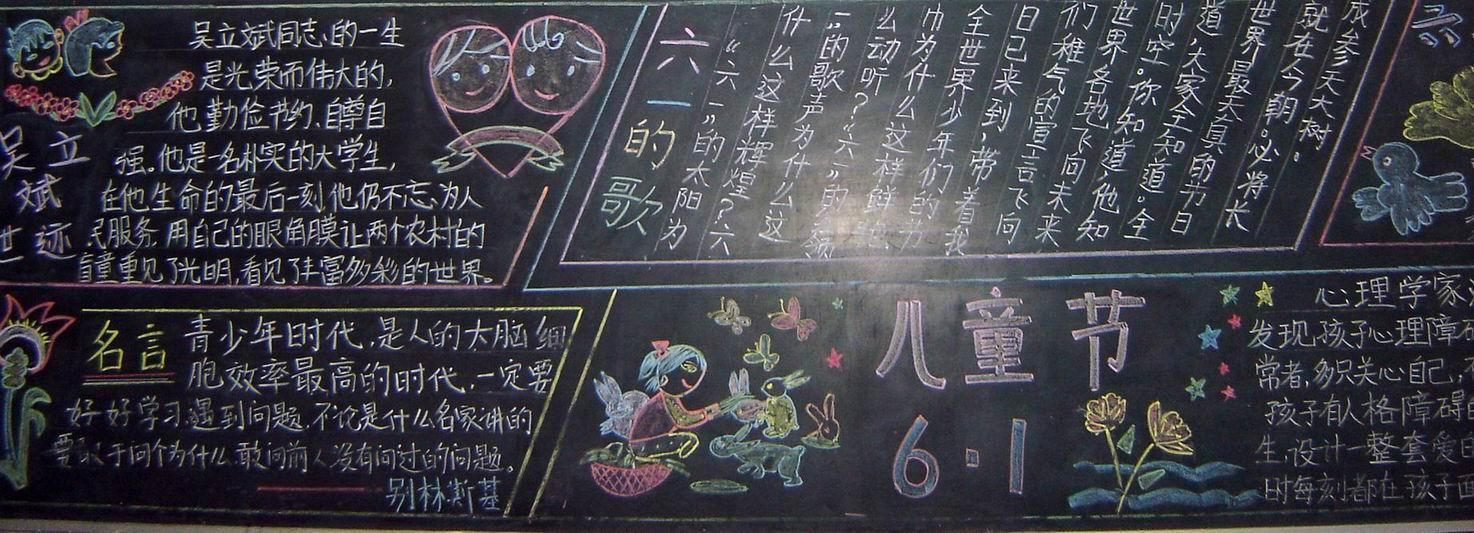 吴立斌世迹
吴立斌同志的一生
是光荣而伟大的,
他勤俭节约、自尊自
强。他是一名朴实的大学生,
在他生命的最后一刻他仍不忘为人
民服务,用自己的眼角膜让两个农村的
盲童重见了光明,看见了丰富多彩的世界。
六一的歌
成参天大树。
就在今朝。必将长
世界最天真的节日
道,大家全知道。全
时空。你知道,他知
世界各地飞向未来
们稚气的宣言飞向
日已来到,带着我
全世界少年们的节
巾为什么这样鲜
么动听?“六一”的领
一”的歌声为什么这
什么这样辉煌?“六
“六一”的太阳为
名言
青少年时代,是人的大脑细
胞效率最高的时代,一定要
好好学习遇到问题,不论是什么名家讲的
要敢于问个为什么,敢问前人没有问过的问题。
别林斯基
儿童节
6·1
心理学家
发现,孩子心理障碍
常者,多只关心自己,
孩子有人格障碍的
生,设计一整套爱的
时每刻都在孩子面